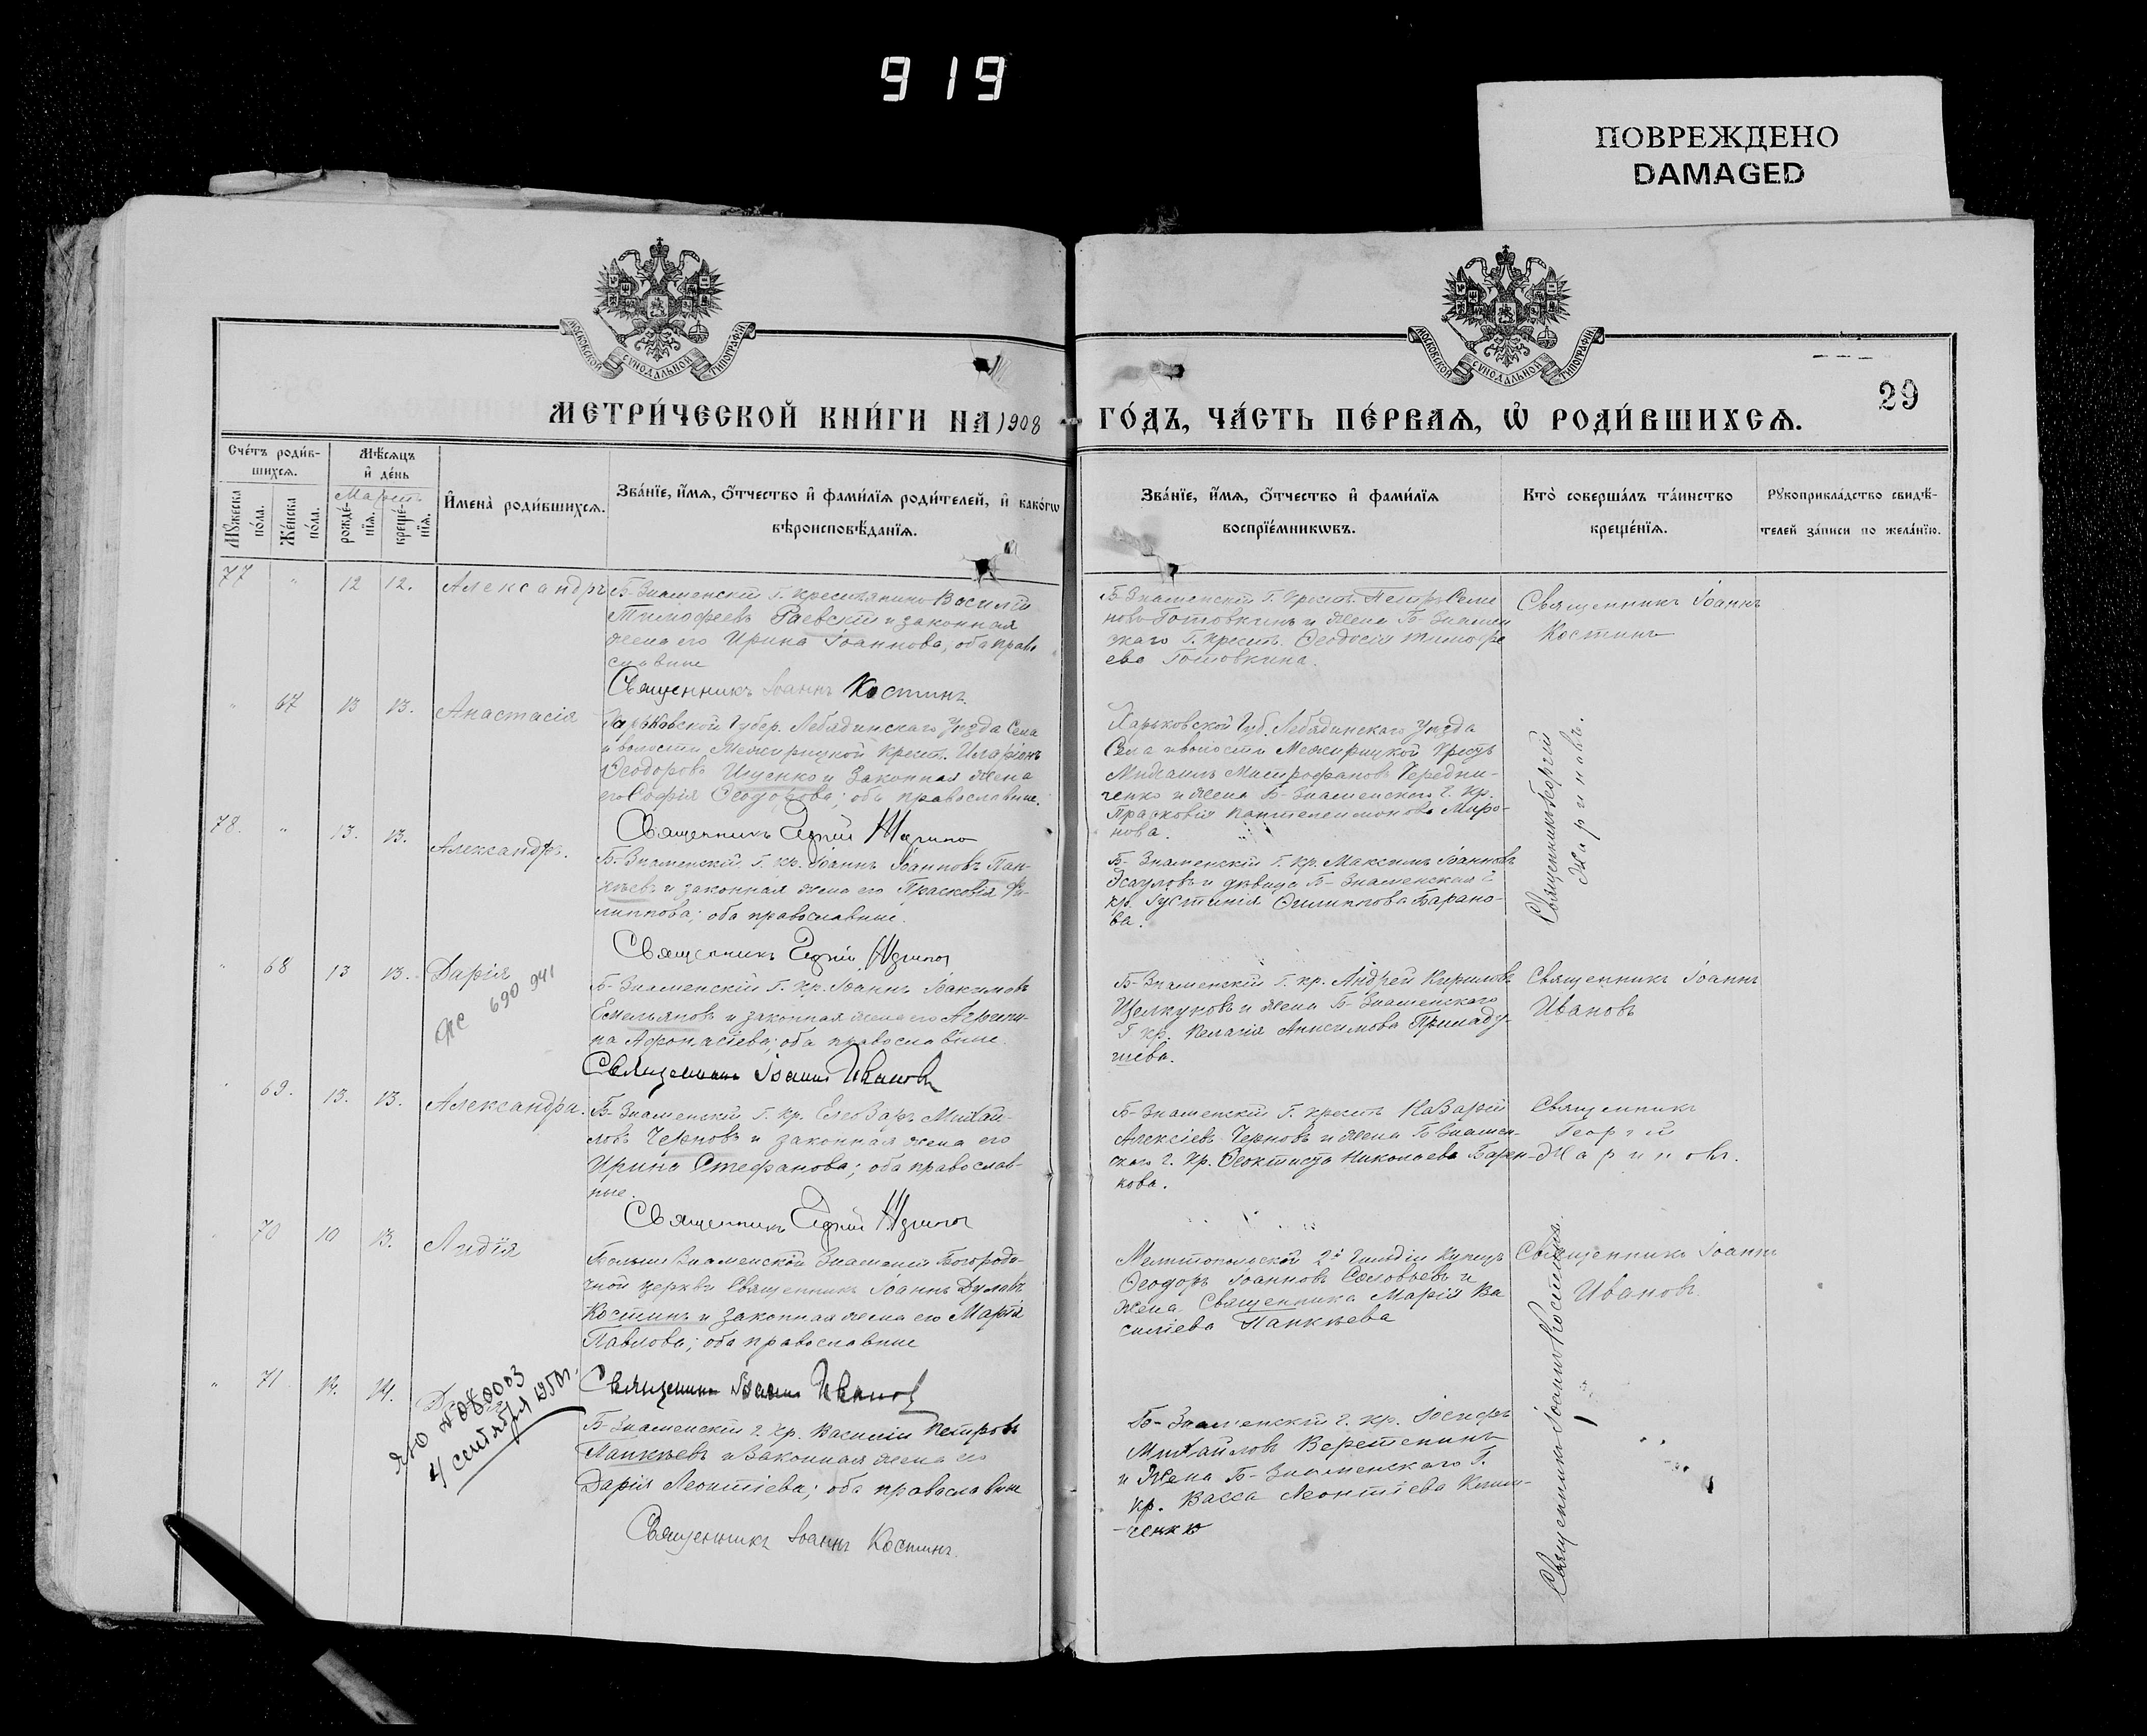 919
ПОВРЕЖДЕНО
DAMAGED
МОСКОВСКОЙ СѴНОДАЛЬНОЙ ТИПОГРАФІИ
МОСКОВСКОЙ СѴНОДАЛЬНОЙ ТИПОГРАФІИ
29
МЕТРИ́ЧЕСКОЙ КНИ́ГИ НА 1908 ГО́ДЪ, ЧА́СТЬ ПЕ́РВАѦ, Ѡ҆ РОДИ́ВШИХСѦ.
Сче́тъ роди́в-
шихсѧ.
Мѣ́сѧцъ
и҆ де́нь
Мартъ
Мꙋ́жеска по́ла.
Же́нска по́ла.
рожде́-нїѧ.
креще́-нїѧ.
И҆мена̀ роди́вшихсѧ.
Зва́нїе, и҆́мѧ, ѻ҆́тчество и҆ фами́лїѧ роди́телей, и҆ како́гѡ
вѣроисповѣ́данїѧ.
Зва́нїе, и҆́мѧ, ѻ҆́тчество и҆ фами́лїѧ
воспрїе́мникѡвъ.
Кто̀ соверша́лъ та́инство
креще́нїѧ.
Рꙋкоприкла́дство свидѣ́-
телей за́писи по жела́нїю.
77 " 12 12. Александръ
Б-Знаменскій Г. крестьянинъ Василій
Тимофеевъ Раевскій и законная
жена его Ирина Іоаннова, оба право
славные
Священникъ Іоаннъ Костинъ
Б-Знаменскій Г. Крест. Петръ Семе
новъ Готовкинъ и жена Б-Знамен
скаго Г. крест. Ѳеодосія Тимофе
ева Готовкина.
Священникъ Іоаннъ
Костинъ
" 67 13 13. Анастасія
Харьковской Губер. Лебядинскаго Уѣзда Села
и волости Межирицкой Крест. Иларіонъ
Ѳеодоровъ Ищенко и Законная жена
его Софія Ѳеодорова; оба православные.
Священникъ
Харьковской Губ. Лебядинскаго Уѣзда
Села и волости Межирицкой Крест.
Михаилъ Митрофановъ Середни-
ченко и жена Б-Знаменскаго Г. кр.
Прасковія Пантелеимонова Миро-
нова.
Священникъ Георгій
Жариновъ.
78. " 13. 13. Александръ.
Б-Знаменскій Г. кр. Іоаннъ Іоанновъ Пан-
кѣевъ и законная жена его Прасковія Фи-
липпова; оба православные.
Священникъ
Б-Знаменскій Г. кр. Максимъ Іоанновъ
Эсауловъ и дѣвица Б-Знаменская Г.
кр. Іустинія Филиппова Барано-
ва.
" 68 13 13. Дарія
690 941
Б-Знаменскій Г. кр. Іоаннъ Іоакимовъ
Емельяновъ и законная жена его Агрипи-
на Афонасіева; оба православные.
Священникъ Іоаннъ Ивановъ
Б-Знаменскій Г. кр. Андрей Кириловъ
Щелкуновъ и жена Б-Знаменскаго
Г кр. Пелагія Анисимова Приладу-
шева.
Священникъ Іоаннъ
Ивановъ
69. 13. 13. Александра.
Б-Знаменскій Г. Кр. Елеазаръ Михай-
ловъ Черновъ и законная жена его
Ирина Стефанова; оба православ-
ные.
Священникъ
Б-Знаменскій Г. крест. Назарій
Алексіевъ Черновъ и жена Б Знамен-
скаго Г. Кр. Ѳеоктиста Николаева Барен-
кова.
Священникъ
Георгій
Жариновъ.
70 10 13. Лидія
Больше Знаменской Знаменія Богороди-
чной церкви Священникъ Іоаннъ
Костинъ и законная жена его Марія
Павлова; оба православные
Священникъ Іоаннъ Ивановъ
Мелитопольскій 2й Гильдіи Купецъ
Ѳеодоръ Іоанновъ Соловьевъ и
жена Священника Марія Ва
силіева Панкѣева
Священникъ Іоаннъ
Ивановъ.
" 71 14.
4/ сентября 1950г.
Б-Знаменскій Г. Кр. Василій Петровъ
Панкѣевъ и Законная жена его
Дарія Леонтіева; оба православные
Священникъ Іоаннъ Костинъ.
Б-Знаменскій Г. кр. Іосифъ
Михайловъ Веретенинъ
и Жена Б-Знаменскаго Г.
кр. Васса Леонтіева
-ченко
Священникъ Іоаннъ Костинъ.